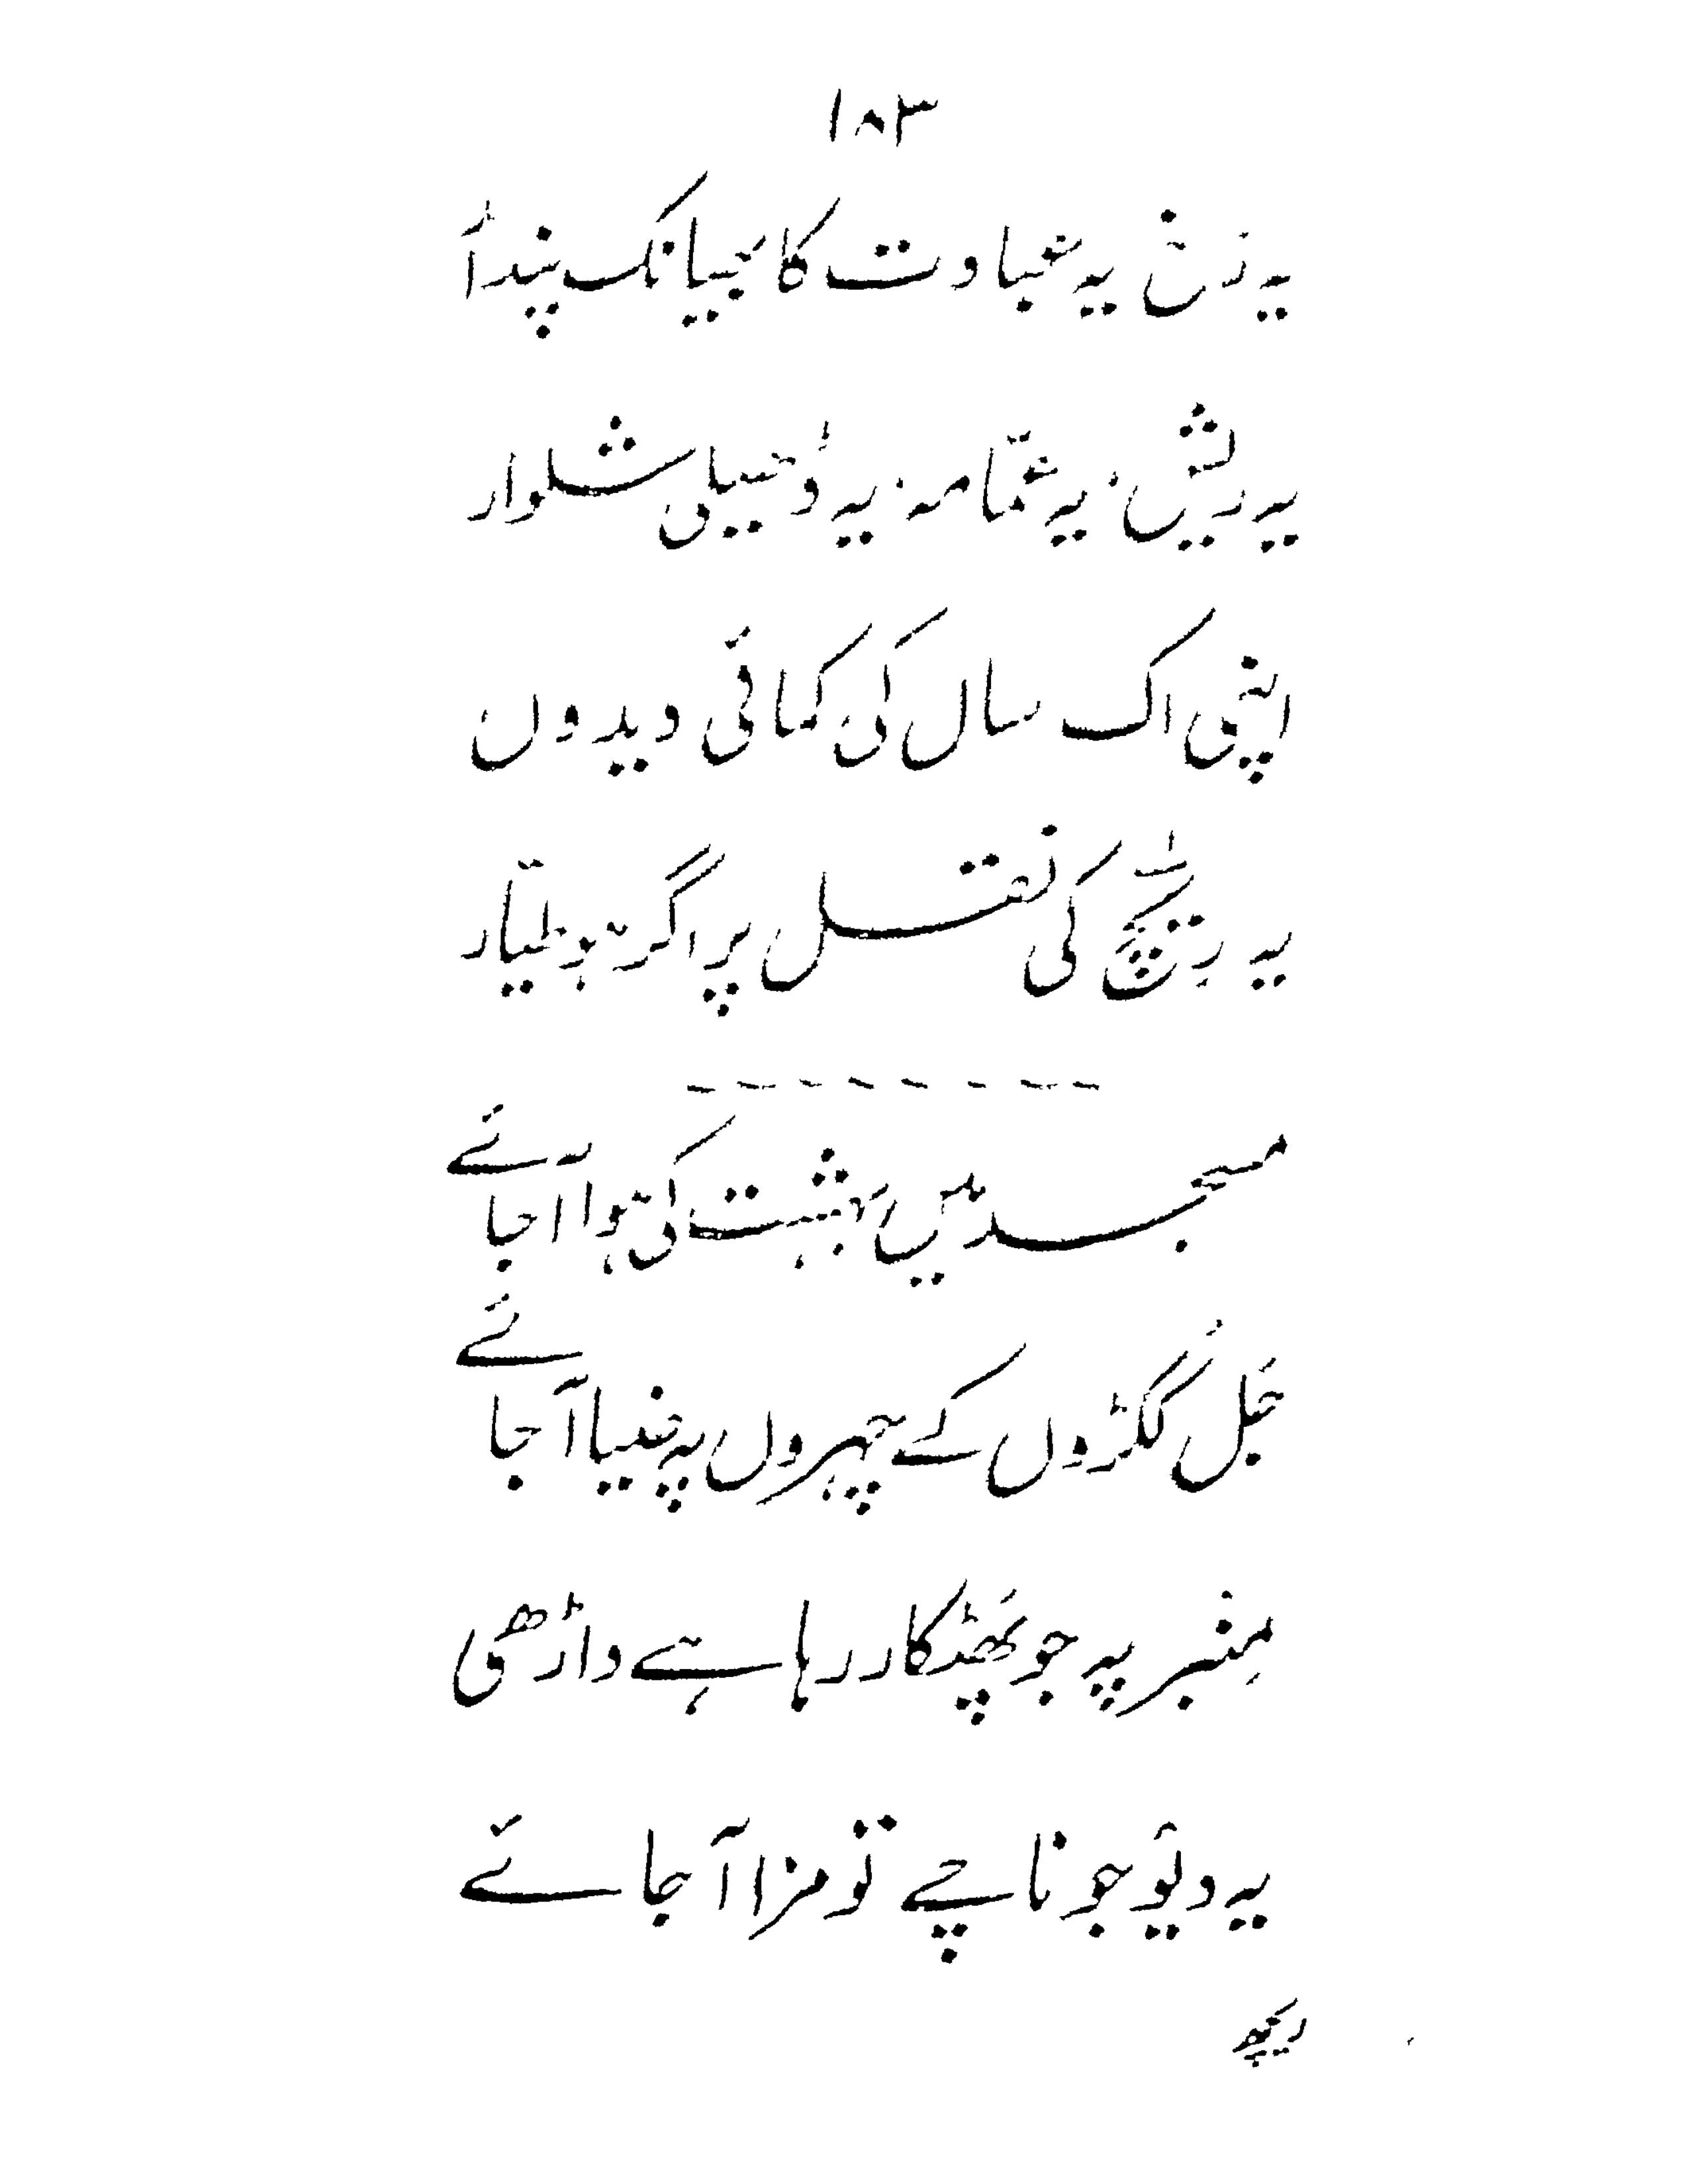 ۱۸۳
یہ ذقن یہ عبادت کا بھیانک پندار
یہ ریش، یہ عمّامہ، یہ ڈھیلی شلوار
اپنی اک سال کی کمائی دیدوں
یہ ریچھ کی نقل پر اگر ہو طیّار
مسجد میں بہشت کی ہوا آجائے
جَل کُکڑوں کے چہروں پہ ضیا آجائے
مِنبر پہ جو پھٹکار رہا ہے داڑھی
یہ دیو جو ناچے تو مزا آجائے
ریچھ